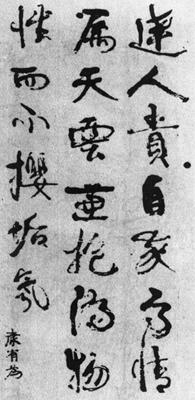 達人貴自我高情
屬天雲兼抱濟物
性而不攖垢氛
康有為